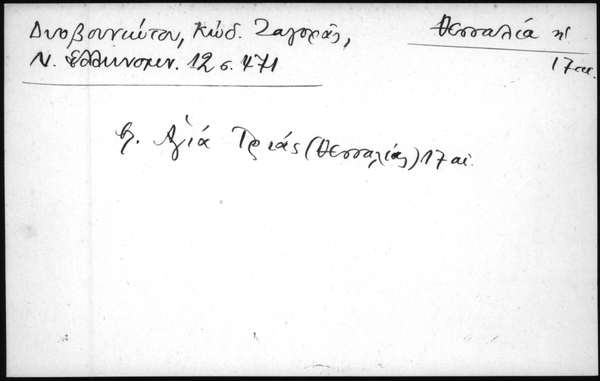 Δυοβουνιώτου, Κώδ. Ζαγορᾶς,
Ν. Ἑλληνομν. 12 σ. 471
Θεσσαλία
17 αἰ.
Ἁγιά Τριάς (Θεσσαλίας) 17 αἰ.